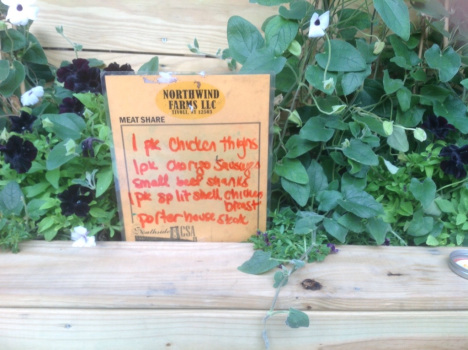 NORTHWIND
FARMS LLC
TIVOLI, NY 12583
MEAT SHARE
1 pk chicken thighs
1pk chorizo sausages
small beef shanks
1 pk split shell chicken
breast
porterhouse steak
CSA